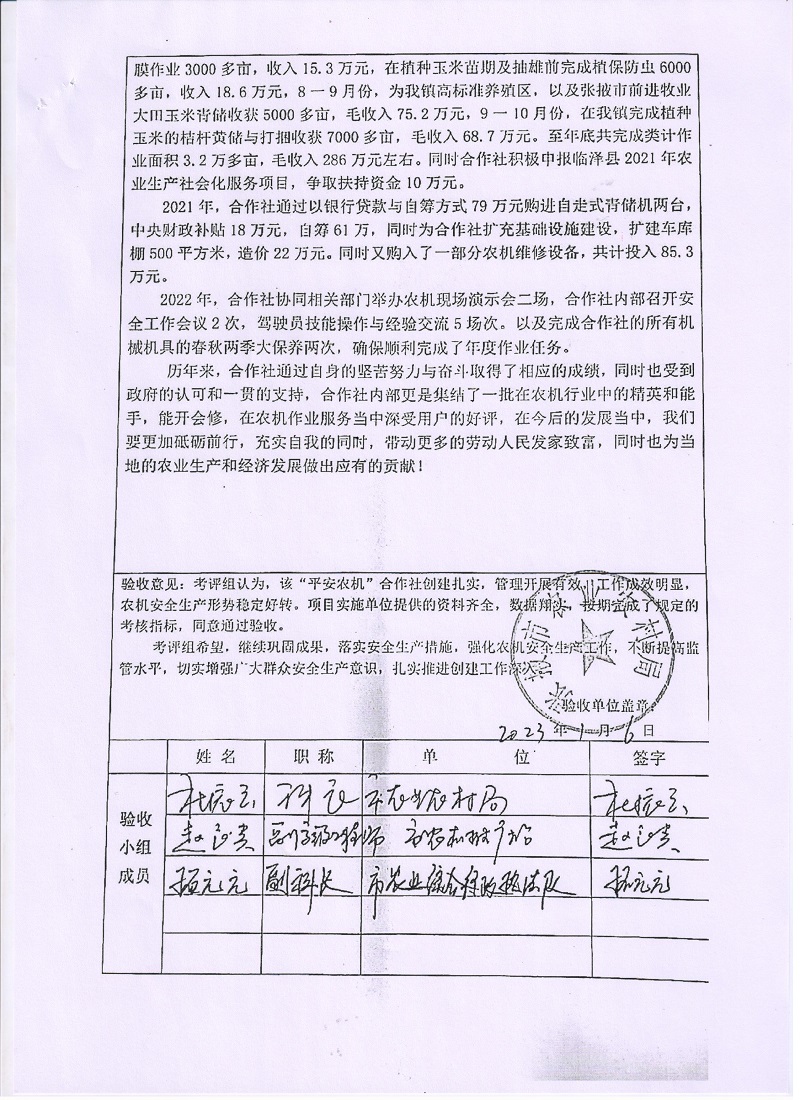 膜作业 3000 多亩，收入 15.3 万元，在植种玉米苗期及抽雄前完成植保防虫 6000
多亩，收入 18.6 万元，8 一 9 月份，为我镇高标准养殖区，以及张掖市前进牧业
大田玉米青储收获 5000 多亩，毛收入 75.2 万元，9 一 10 月份，在我镇完成植种
玉米的秸秆黄储与打捆收获 7000 多亩，毛收入 68.7 万元。至年底共完成类计作
业面积 3.2 万多亩，毛收入 286 万元左右。同时合作社积极申报临泽县 2021 年农
业生产社会化服务项目，争取扶持资金 10 万元。
2021 年，合作社通过以银行贷款与自筹方式 79 万元购进自走式青储机两台，
中央财政补贴 18 万元，自筹 61 万，同时为合作社扩充基础设施建设，扩建车库
棚 500 平方米，造价 22 万元。同时又购入了一部分农机维修设备，共计投入 85.3
万元。
2022 年，合作社协同相关部门举办农机现场演示会二场，合作社内部召开安
全工作会议 2 次，驾驶员技能操作与经验交流 5 场次。以及完成合作社的所有机
械机具的春秋两季大保养两次，确保顺利完成了年度作业任务。
历年来，合作社通过自身的坚苦努力与奋斗取得了相应的成绩，同时也受到
政府的认可和一贯的支持，合作社内部更是集结了一批在农机行业中的精英和能
手，能开会修，在农机作业服务当中深受用户的好评，在今后的发展当中，我们
要更加砥砺前行，充实自我的同时，带动更多的劳动人民发家致富，同时也为当
地的农业生产和经济发展做出应有的贡献！
验收意见：考评组认为，该“平安农机”合作社创建扎实，管理开展有效，工作成效明显，
农机安全生产形势稳定好转。项目实施单位提供的资料齐全，数据翔实，按期完成了规定的
考核指标，同意通过验收。
考评组希望，继续巩固成果，落实安全生产措施，强化农机安全生产工作，不断提高监
管水平，切实增强广大群众安全生产意识，扎实推进创建工作深
张掖市农业农村局
验收单位盖章
2023 年 1 月 6 日
姓 名 职 称 单 位 签字
验收
小组
成员
科长 市农业农村局
赵 副高级工程师 市农机推广站 赵
杨元元 副科长 市农业综合行政执法队 杨元元